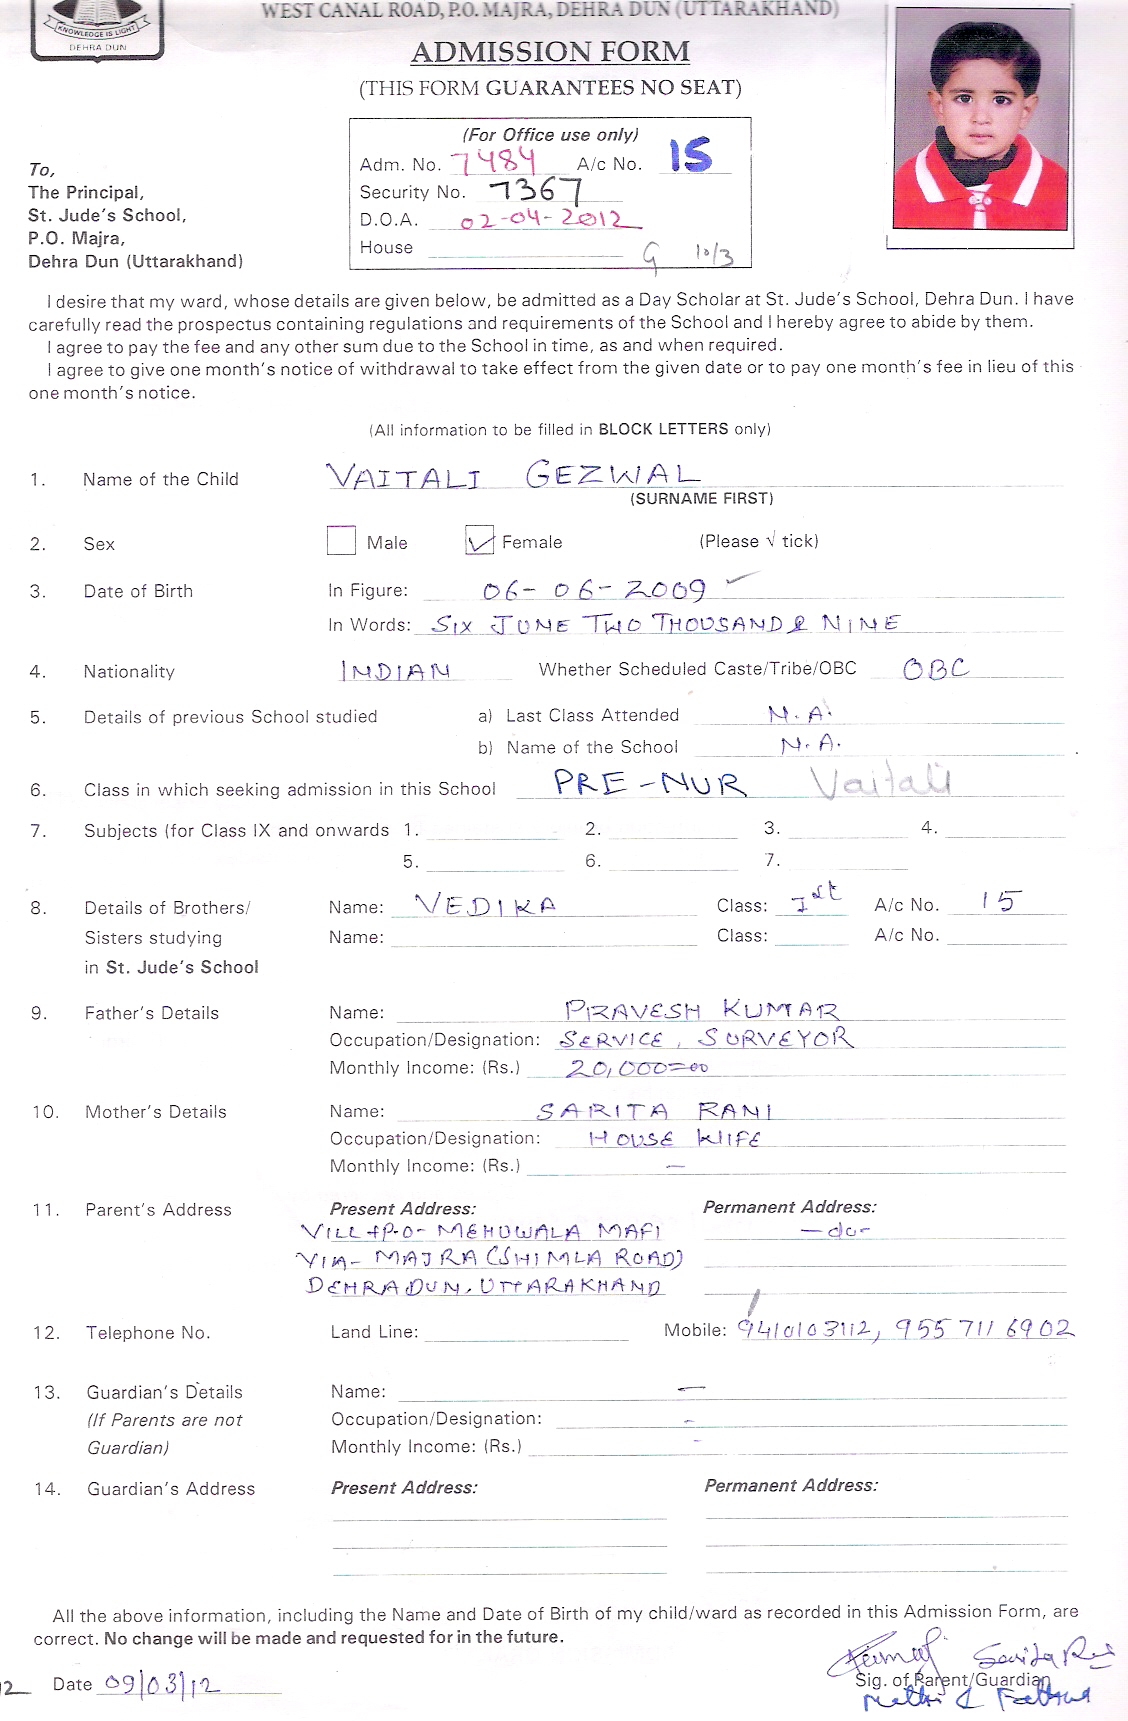 KNOWLEDGE IS LIGHT
DEHRA DUN
WEST CANAL ROAD, P.O. MAJRA, DEHRA DUN (UTTARAKHAND)
ADMISSION FORM
(THIS FORM GUARANTEES NO SEAT)
(For Office use only)
Adm. No. 7484 A/c No. 15
Security No. 7367
D.O.A. 02-04-2012
House G 10/3
To,
The Principal,
St. Jude's School,
P.O. Majra,
Dehra Dun (Uttarakhand)
I desire that my ward, whose details are given below, be admitted as a Day Scholar at St. Jude's School, Dehra Dun. I have
carefully read the prospectus containing regulations and requirements of the School and I hereby agree to abide by them.
I agree to pay the fee and any other sum due to the School in time, as and when required.
I agree to give one month's notice of withdrawal to take effect from the given date or to pay one month's fee in lieu of this
one month's notice.
(All information to be filled in BLOCK LETTERS only)
1. Name of the Child VAITALI GEZWAL
(SURNAME FIRST)
2. Sex Male Female (Please √ tick)
3. Date of Birth In Figure: 06-06-2009
In Words: SIX JUNE TWO THOUSAND & NINE
4. Nationality INDIAN Whether Scheduled Caste/Tribe/OBC OBC
5. Details of previous School studied a) Last Class Attended N.A.
b) Name of the School N.A.
6. Class in which seeking admission in this School PRE-NUR Vaitali
7. Subjects (for Class IX and onwards 1. 2. 3. 4.
5. 6. 7.
8. Details of Brothers/ Name: VEDIKA Class: Ist A/c No. 15
Sisters studying Name: Class: A/c No.
in St. Jude's School
9. Father's Details Name: PRAVESH KUMAR
Occupation/Designation: SERVICE, SURVEYOR
Monthly Income: (Rs.) 20,000=00
10. Mother's Details Name: SARITA RANI
Occupation/Designation: HOUSE WIFE
Monthly Income: (Rs.) —
11. Parent's Address Present Address: Permanent Address:
VILL+P.O- MEHUWALA MAFI —do-
VIA- MAJRA (SHIMLA ROAD)
DEHRADUN, UTTARAKHAND
12. Telephone No. Land Line: Mobile: 9410103112, 9557116902
13. Guardian's Details Name: —
(If Parents are not Occupation/Designation: -
Guardian) Monthly Income: (Rs.) -
14. Guardian's Address Present Address: Permanent Address:
All the above information, including the Name and Date of Birth of my child/ward as recorded in this Admission Form, are
correct. No change will be made and requested for in the future.
Sarita Rani
Date 09/03/12 Sig. of Parent/Guardian